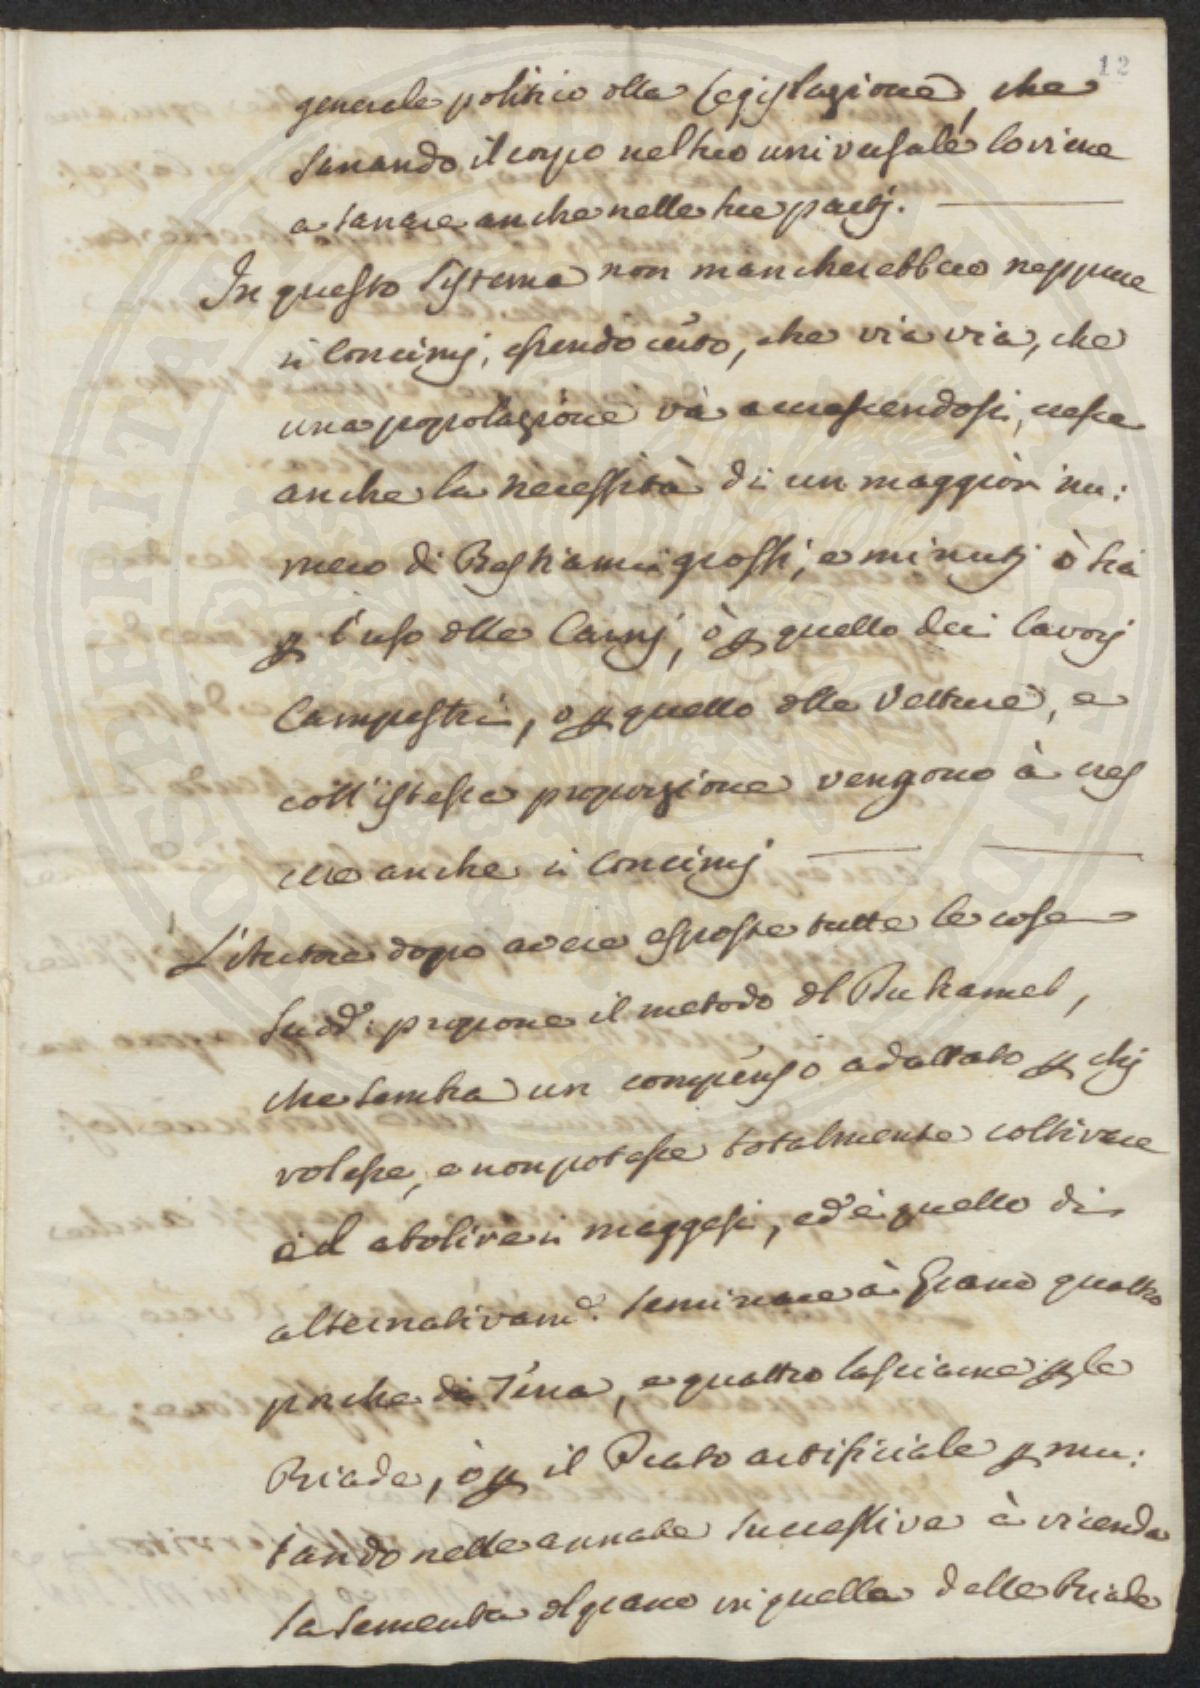 12
generale politico dlla Legislazione, che
sanando il corpo nel suo universale lo viene
a sanare anche nelle sue partj.
In questo Sistema non mancherebbero neppure
i Concimj, essendo certo, che via via, che
una popolazione và accrescendosi, cresce
anche la necessità di un maggior nu:
mero di Bestiami grossi, e minutj ò sia
p l'uso dlle Carnj, ò p quello dei lavorj
Campestri, o p quello dlle Vetture, e
coll'istessa proporzione vengono à cres
cere anche i Concimj
L'Autore dopo avere esposte tutte le cose
sudd: propone il metodo dl Duhamel,
che sembra un compenso adattato p chj
volesse, e non potesse totalmente coltivare
ed abolire i maggesi, ed è quello di
alternativamᵉ. seminare à Grano quattro
porche di Terra, e quattro lasciarne p le
Biade, ò p il Prato artificiale p mu:
tando nelle annate successive à vicenda
la sementa dl grano in quella delle Biade
PROSPERITATI PUBLICAE AUGENDAE